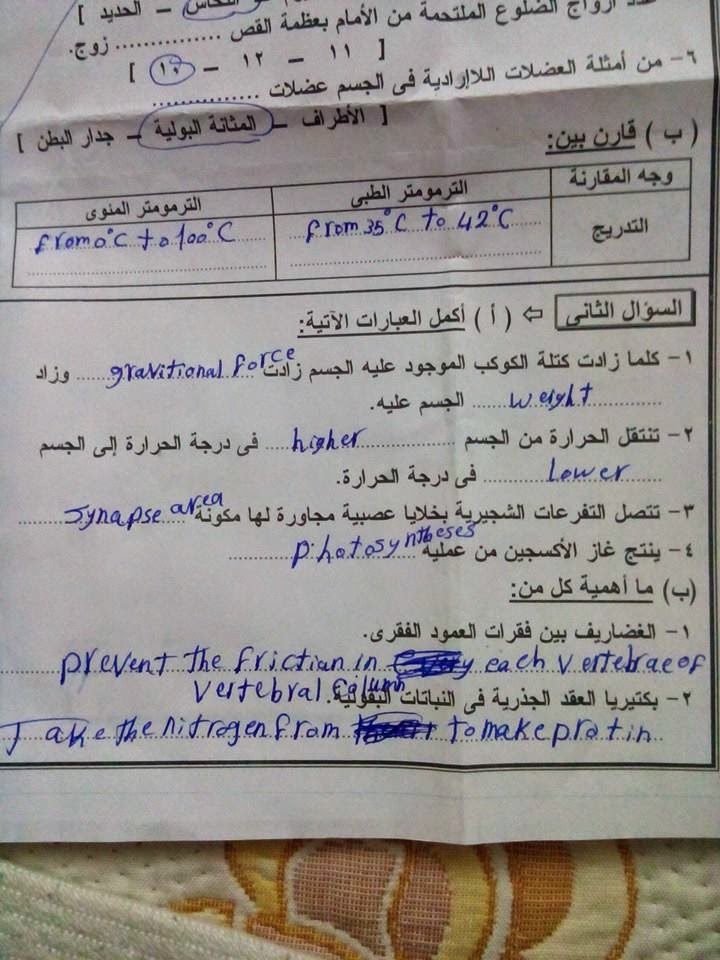 النحاس – الحديد ]
عدد أزواج الضلوع الملتحمة من الأمام بعظمة القص .............. زوج.
[ ١١ – ١٢ – ١٠ ]
٦- من أمثلة العضلات اللاإرادية فى الجسم عضلات ..............
[ الأطراف – المثانة البولية – جدار البطن ]
( ب ) قارن بين:
وجه المقارنة الترمومتر الطبى الترمومتر المئوى
التدريج from 35°C to 42°C from 0°C to 100°C
السؤال الثانى ⇦ ( أ ) أكمل العبارات الآتية:
١- كلما زادت كتلة الكوكب الموجود عليه الجسم زادت gravitional force وزاد
weight الجسم عليه.
٢- تنتقل الحرارة من الجسم higher فى درجة الحرارة إلى الجسم
lower فى درجة الحرارة.
٣- تتصل التفرعات الشجيرية بخلايا عصبية مجاورة لها مكونة synapse area
٤- ينتج غاز الأكسجين من عملية photosyntheses
(ب) ما أهمية كل من:
١- الغضاريف بين فقرات العمود الفقرى.
prevent the frictian in each vertebrae of
vertebral calumn
٢- بكتيريا العقد الجذرية فى النباتات البقولية.
Take the nitrogen from to make protin